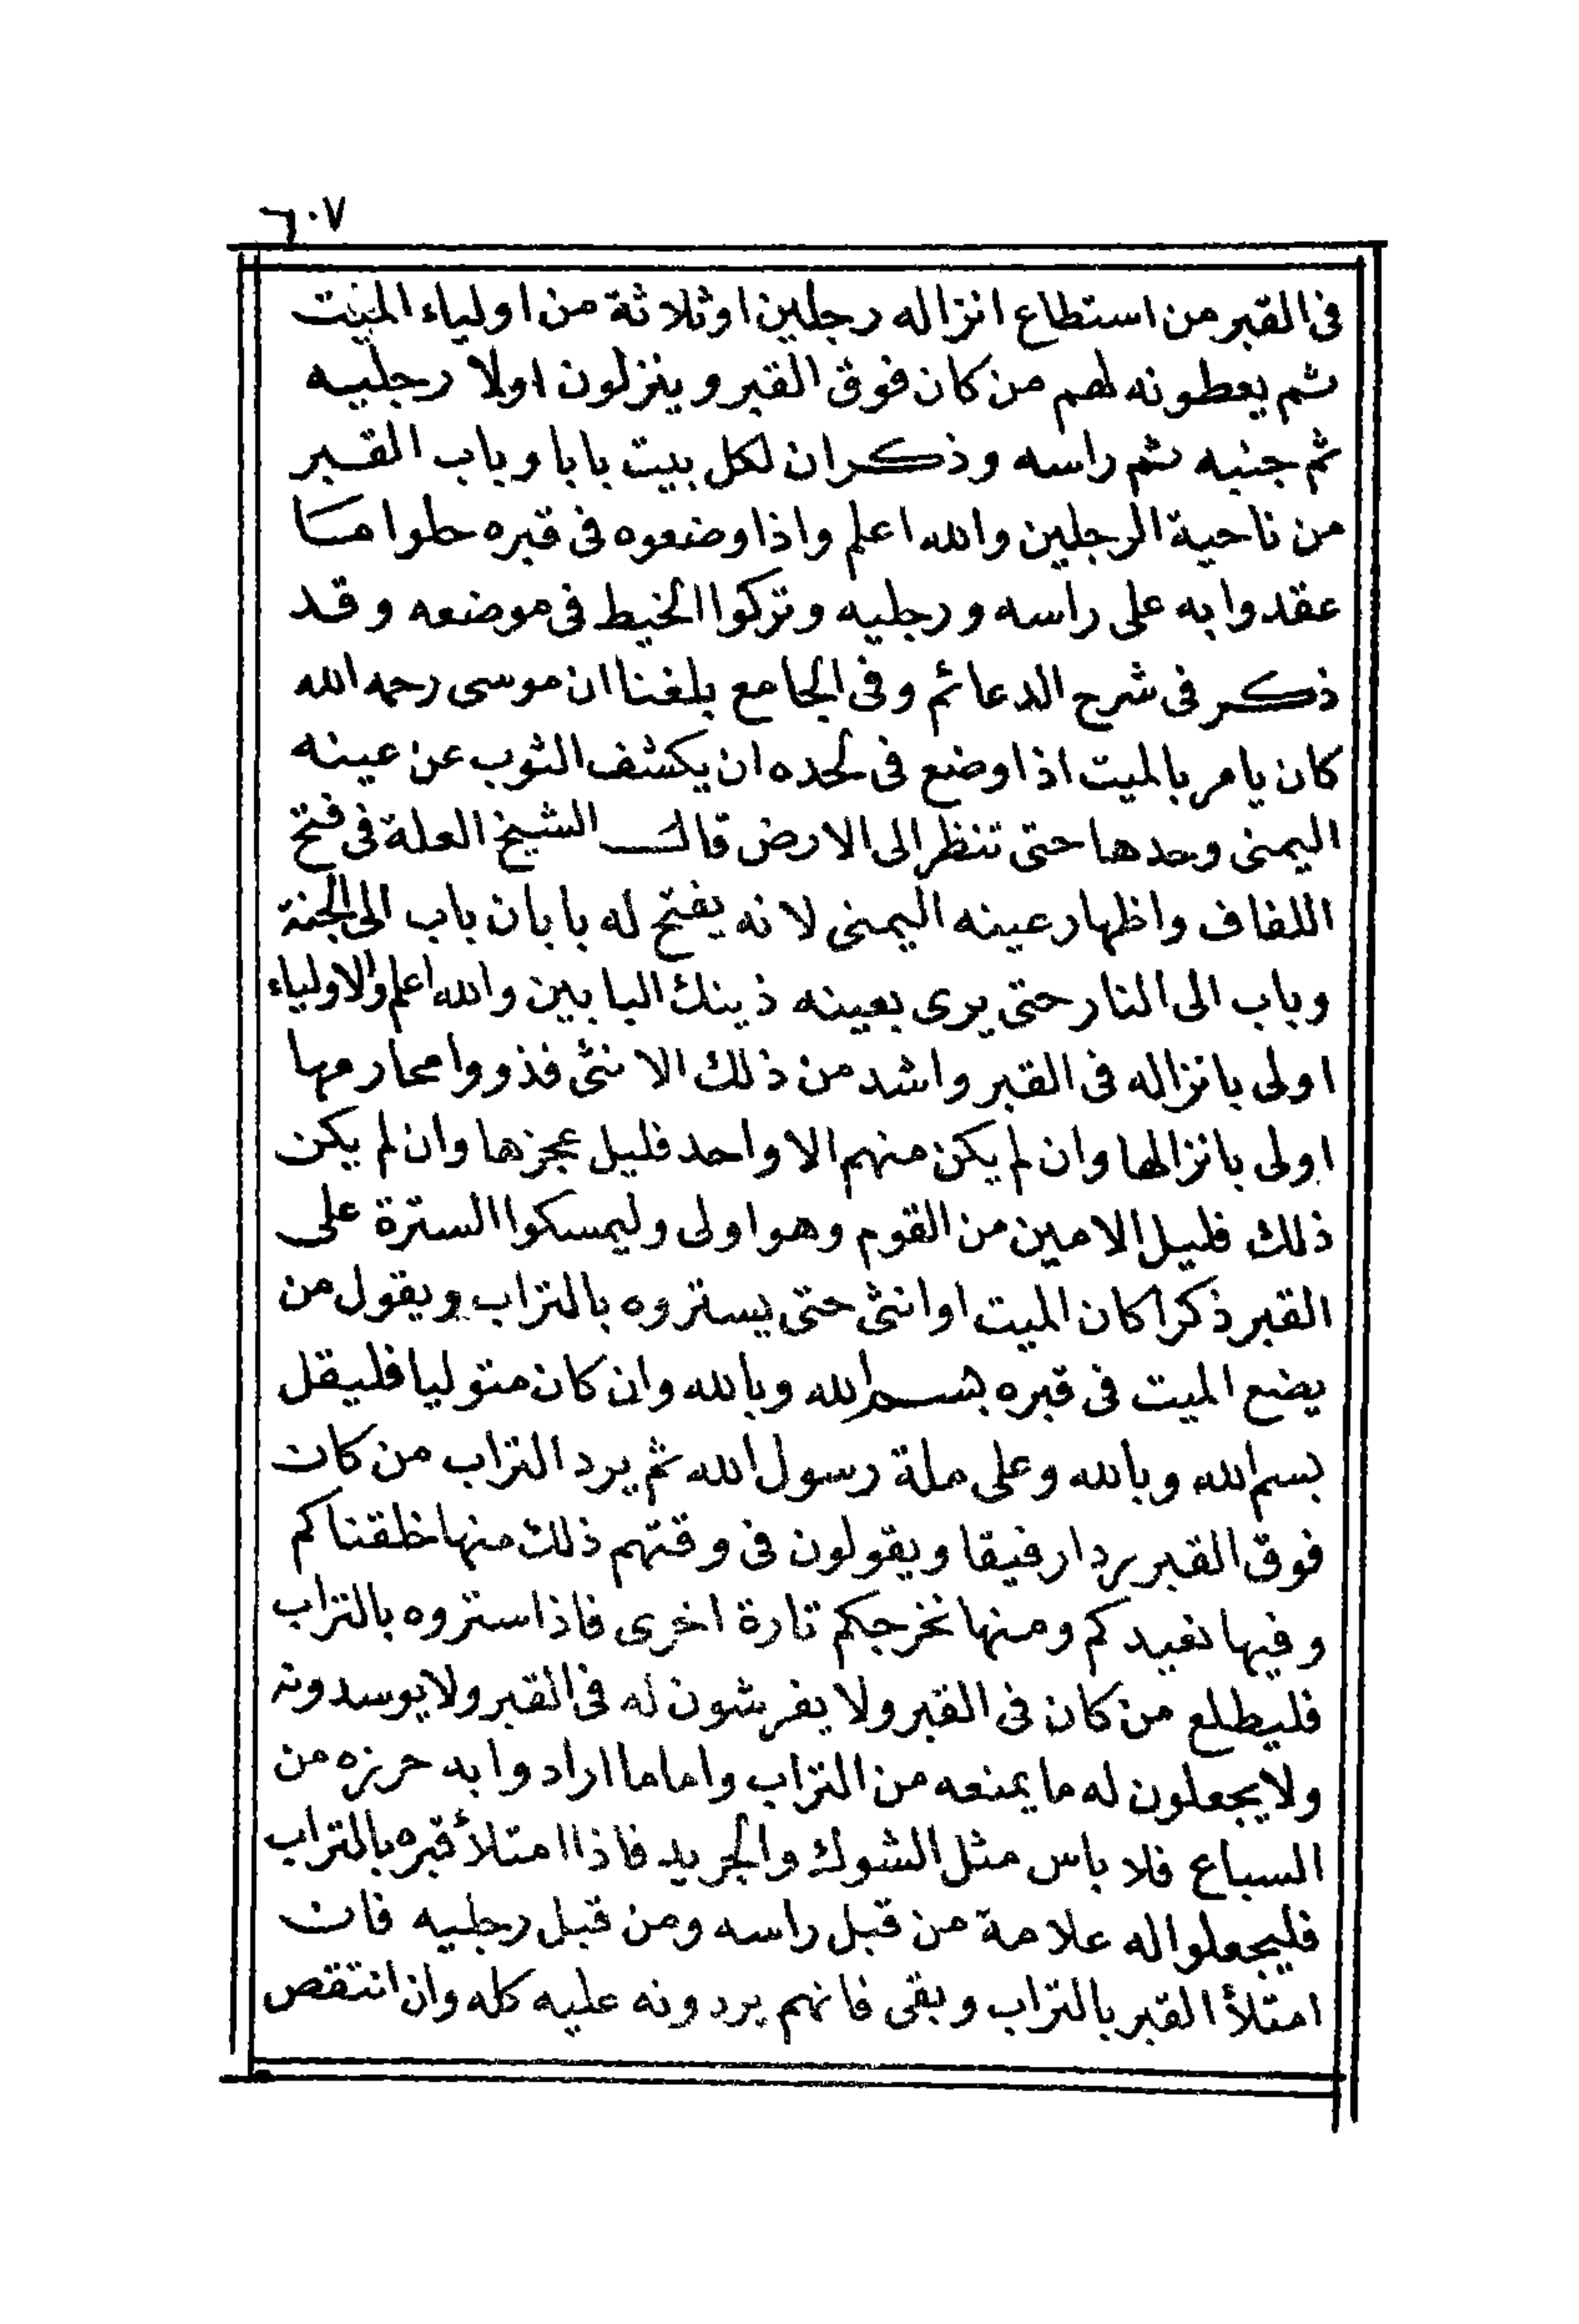 ٦٠٧
فى القبر من استطاع انزاله رجلين اوثلاثة من اولياء الميت
ثم يعطونه لهم من كان فوق القبر وينزلون اولا رجليه
ثم جنبه ثم راسه وذكر ان لكل بيت بابا وباب القبر
من ناحية الرجلين والله اعلم واذا وضعوه فى قبره حلوا ما
عقدوا به على راسه ورجليه وتركوا الخيط فى موضعه وقد
ذكر فى شرح الدعائم وفى الجامع بلغنا ان موسى رحمه الله
كان يامر بالميت اذا وضع فى لحده ان يكشف الثوب عن عينه
اليمنى وحدها حتى تنظر الى الارض قال الشيخ العلة فى فتح
اللفاف واظهار عينه اليمنى لانه يفتح له بابان باب الى الجنة
وباب الى النار حتى يرى بعينه ذينك البابين والله اعلم والاولياء
اولى بانزاله فى القبر واشد من ذلك الانثى فذووا محارمها
اولى بانزالها وان لم يكن منهم الا واحد فليل عجزها وان لم يكن
ذلك فليل الامين من القوم وهو اولى وليمسكوا السترة على
القبر ذكرا كان الميت اوانثى حتى يستروه بالتراب ويقول من
يضع الميت فى قبره بسم الله وبالله وان كان متوليا فليقل
بسم الله وبالله وعلى ملة رسول الله ثم يرد التراب من كان
فوق القبر ردا رفيقا ويقولون فى وقتهم ذلك منها خلقناكم
وفيها نعيدكم ومنها نخرجكم تارة اخرى فاذا ستروه بالتراب
فليطلع من كان فى القبر ولا يفرشون له فى القبر ولا يوسدونه
ولا يجعلون له ما يمنعه من التراب واما ما ارادوا به حرزه من
السباع فلا باس مثل الشوك والجريد فاذا امتلأ قبره بالتراب
فليجعلوا له علامة من قبل راسه ومن قبل رجليه فان
امتلأ القبر بالتراب وبقى فانهم يردونه عليه كله وان انتقص